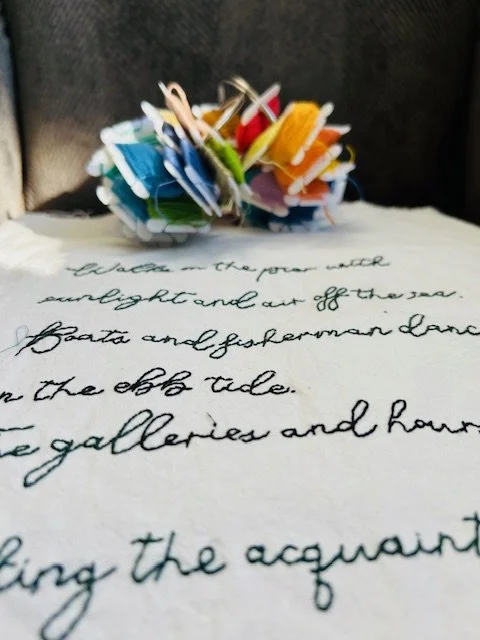 Walks on the pier with
sunlight and air off the sea.
Boats and fisherman danc
n the ebb tide.
te galleries and hours
ting the acquaint